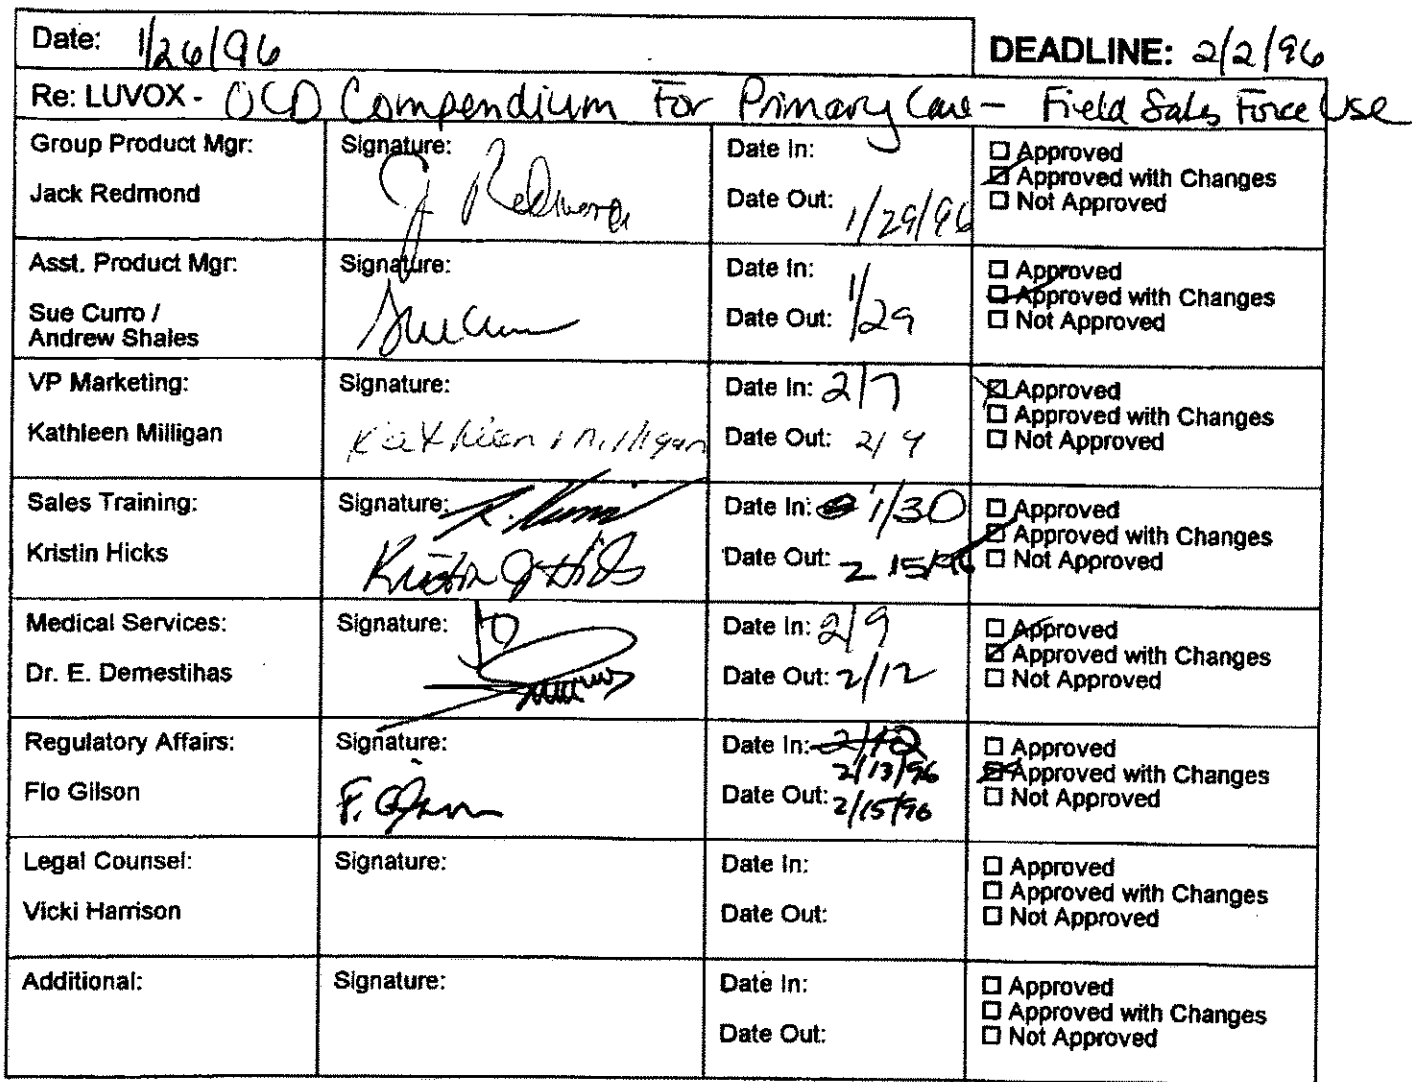 Date: 1/26/96
DEADLINE: 2/2/96
Re: LUVOX - OCD Compendium For Primary Care - Field Sales Force Use
Group Product Mgr:
Jack Redmond
Signature:
J Redmond
Date In:
Date Out: 1/29/96
☐ Approved
☑ Approved with Changes
☐ Not Approved
Asst. Product Mgr:
Sue Curro /
Andrew Shales
Signature:
Sue Curro
Date In:
Date Out: 1/29
☐ Approved
☑ Approved with Changes
☐ Not Approved
VP Marketing:
Kathleen Milligan
Signature:
Kathleen Milligan
Date In: 2/7
Date Out: 2/9
☑ Approved
☐ Approved with Changes
☐ Not Approved
Sales Training:
Kristin Hicks
Signature:
Kristin J Hicks
Date In: 1/30
Date Out: 2/15/96
☐ Approved
☑ Approved with Changes
☐ Not Approved
Medical Services:
Dr. E. Demestihas
Signature:
Date In: 2/9
Date Out: 2/12
☐ Approved
☑ Approved with Changes
☐ Not Approved
Regulatory Affairs:
Flo Gilson
Signature:
F. Gilson
Date In: 2/12
2/13/96
Date Out: 2/15/96
☐ Approved
☑ Approved with Changes
☐ Not Approved
Legal Counsel:
Vicki Harrison
Signature:
Date In:
Date Out:
☐ Approved
☐ Approved with Changes
☐ Not Approved
Additional:
Signature:
Date In:
Date Out:
☐ Approved
☐ Approved with Changes
☐ Not Approved